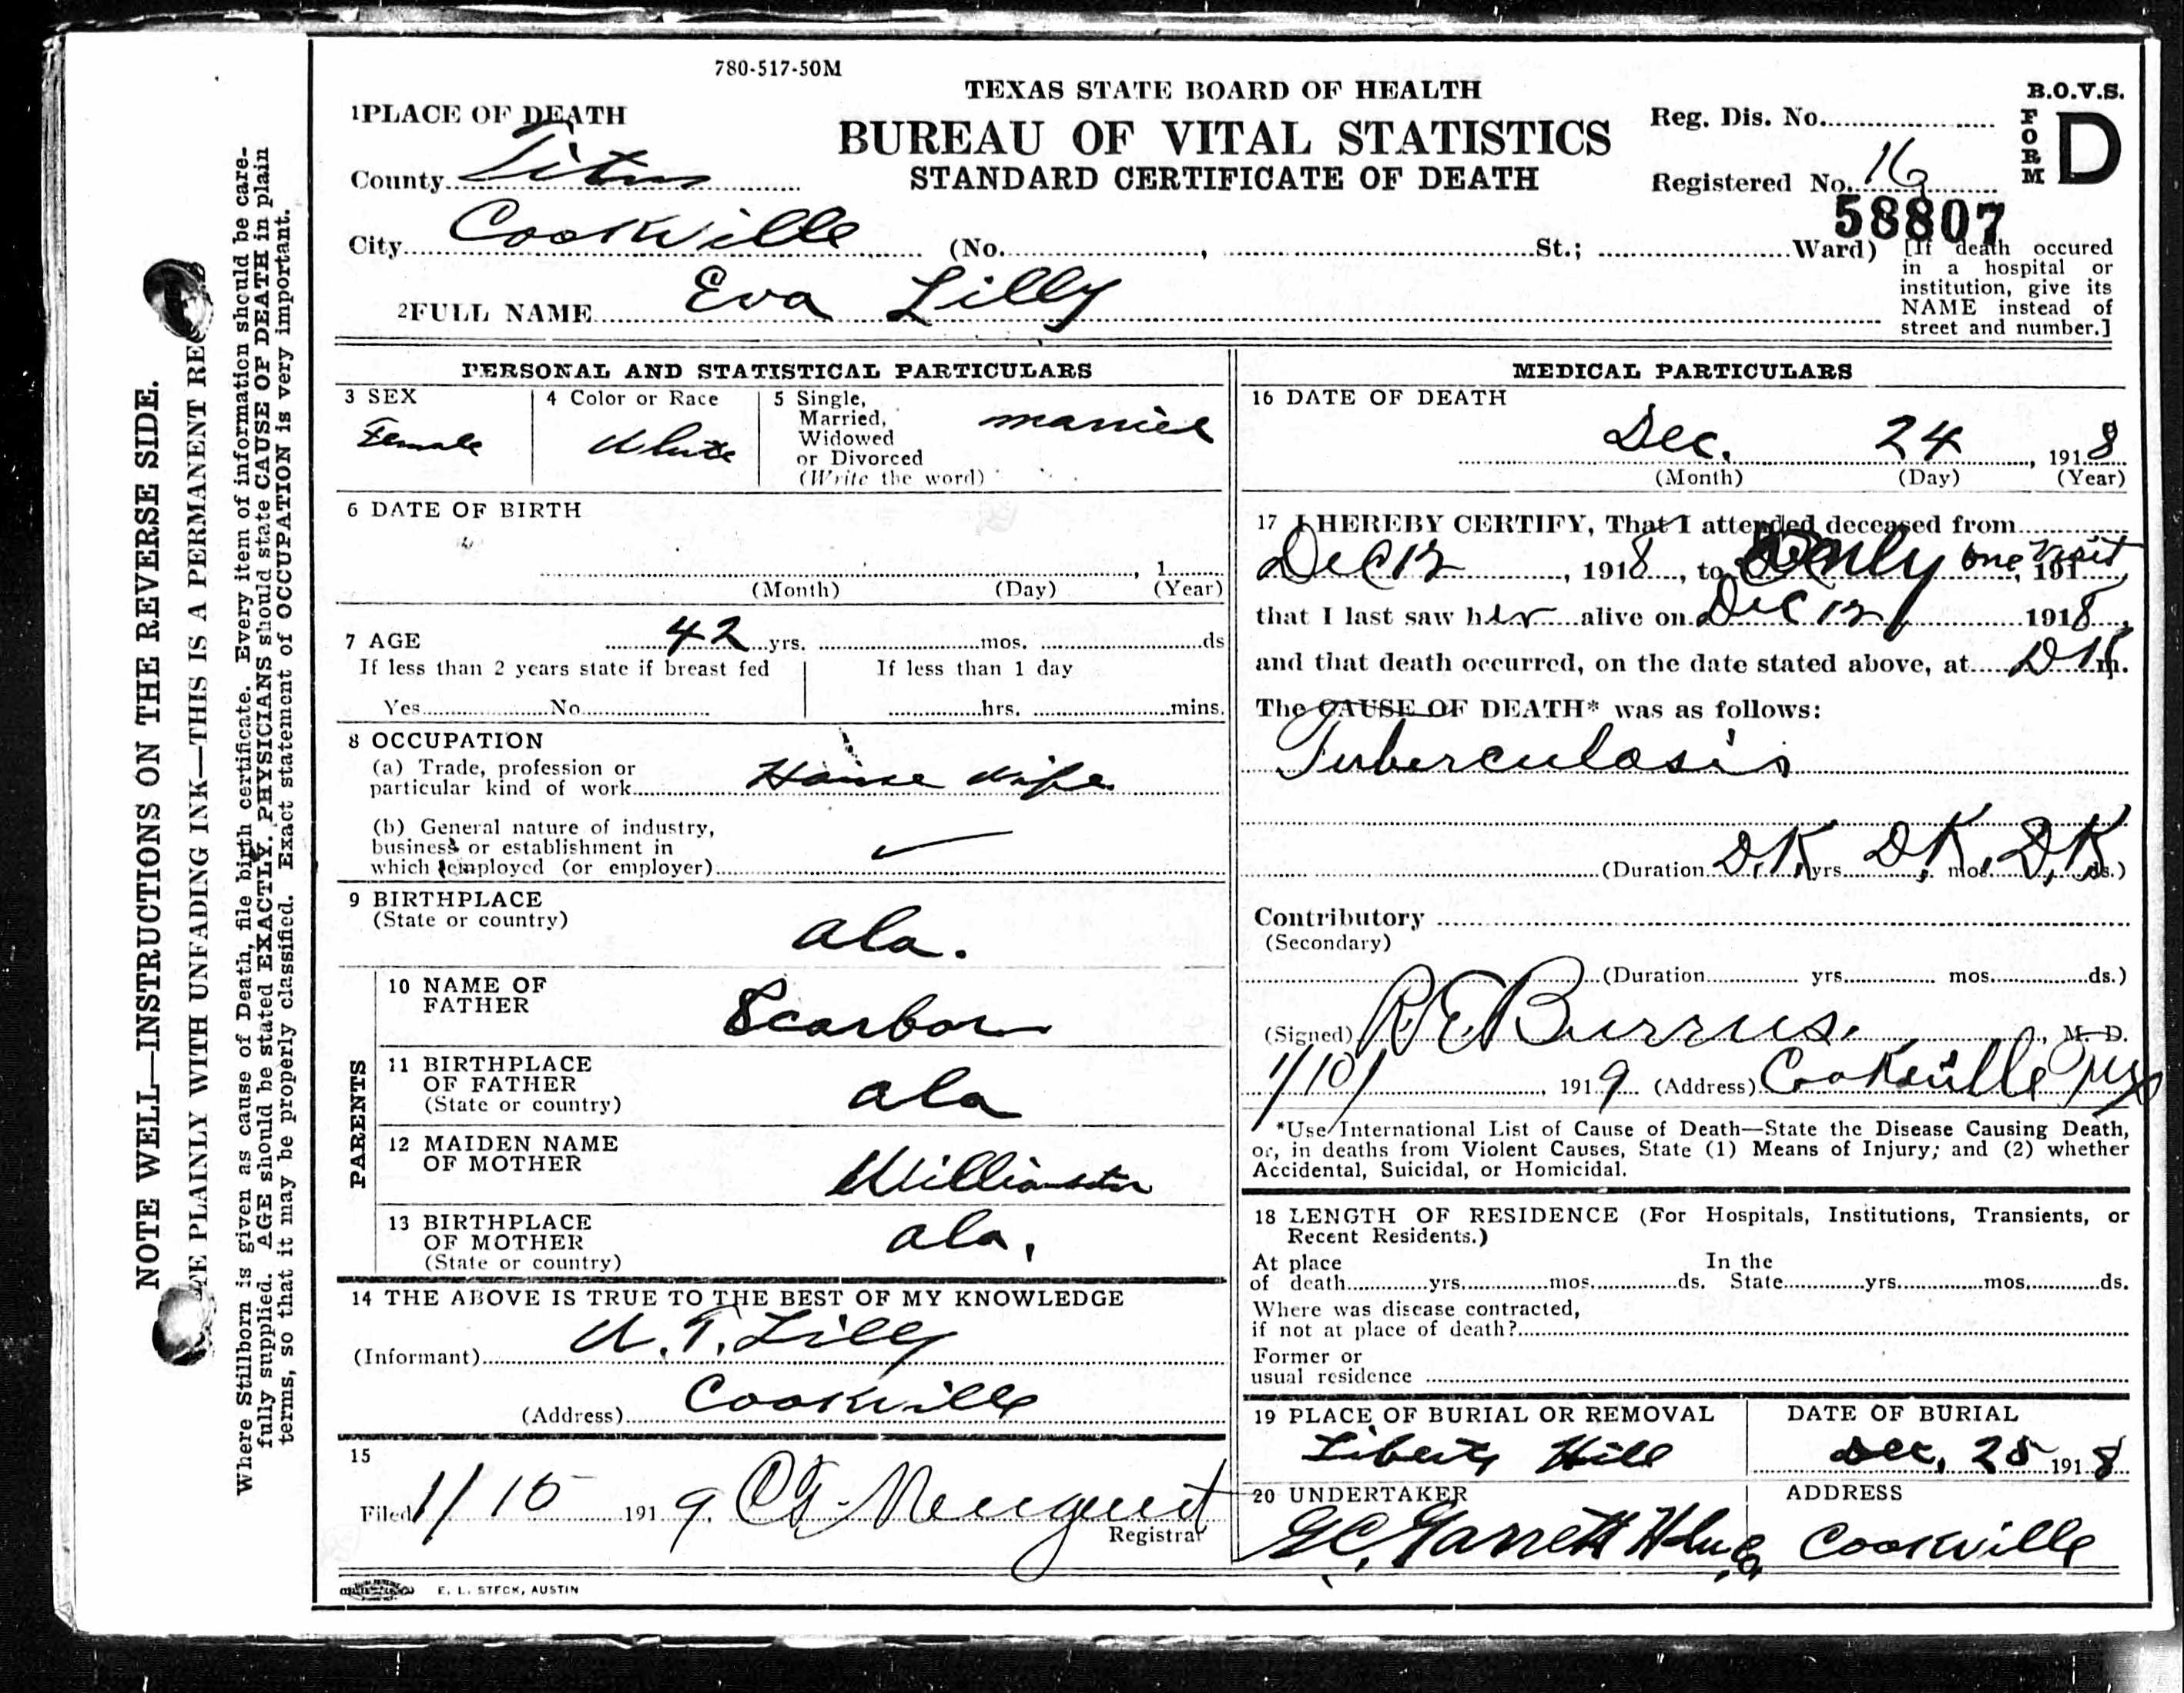 780-517-50M
TEXAS STATE BOARD OF HEALTH
BUREAU OF VITAL STATISTICS
STANDARD CERTIFICATE OF DEATH
B.O.V.S.
FORM D
Reg. Dis. No.
Registered No. 16
58807
1 PLACE OF DEATH
County Titus
City Cookville (No. , St.; Ward)
[If death occured
in a hospital or
institution, give its
NAME instead of
street and number.]
2 FULL NAME Eva Lilly
PERSONAL AND STATISTICAL PARTICULARS
3 SEX
Female
4 Color or Race
White
5 Single,
Married,
Widowed
or Divorced
(Write the word)
married
6 DATE OF BIRTH
, 1
(Month) (Day) (Year)
7 AGE 42 yrs. mos. ds
If less than 2 years state if breast fed
Yes No
If less than 1 day
hrs. mins.
8 OCCUPATION
(a) Trade, profession or
particular kind of work House Wife
(b) General nature of industry,
business or establishment in
which employed (or employer)
9 BIRTHPLACE
(State or country)
Ala.
PARENTS
10 NAME OF
FATHER
Scarbor
11 BIRTHPLACE
OF FATHER
(State or country)
Ala
12 MAIDEN NAME
OF MOTHER
13 BIRTHPLACE
OF MOTHER
(State or country)
Ala.
14 THE ABOVE IS TRUE TO THE BEST OF MY KNOWLEDGE
(Informant) W. T. Lilly
(Address) Cookville
15
Filed 1/15 1919,
Registrar
E. L. STECK, AUSTIN
MEDICAL PARTICULARS
16 DATE OF DEATH
Dec. 24, 1918
(Month) (Day) (Year)
17 I HEREBY CERTIFY, That I attended deceased from
Dec 12, 1918, to Only one visit, 191
that I last saw her alive on Dec 12 1918,
and that death occurred, on the date stated above, at DK m.
The CAUSE OF DEATH* was as follows:
Tuberculosis
(Duration D.K. yrs. D.K. mos. D.K. ds.)
Contributory
(Secondary)
(Duration yrs. mos. ds.)
(Signed) R.E. Burrus, M. D.
1/10/, 1919 (Address) Cookville Tex
*Use International List of Cause of Death—State the Disease Causing Death,
or, in deaths from Violent Causes, State (1) Means of Injury; and (2) whether
Accidental, Suicidal, or Homicidal.
18 LENGTH OF RESIDENCE (For Hospitals, Institutions, Transients, or
Recent Residents.)
At place In the
of death yrs. mos. ds. State yrs. mos. ds.
Where was disease contracted,
if not at place of death?
Former or
usual residence
19 PLACE OF BURIAL OR REMOVAL
Liberty Hill
DATE OF BURIAL
Dec. 25 1918
20 UNDERTAKER
Garrett
ADDRESS
Cookville
NOTE WELL—INSTRUCTIONS ON THE REVERSE SIDE.
TE PLAINLY WITH UNFADING INK—THIS IS A PERMANENT REC
Where Stillborn is given as cause of Death, file birth certificate. Every item of information should be care-
fully supplied. AGE should be stated EXACTLY. PHYSICIANS should state CAUSE OF DEATH in plain
terms, so that it may be properly classified. Exact statement of OCCUPATION is very important.